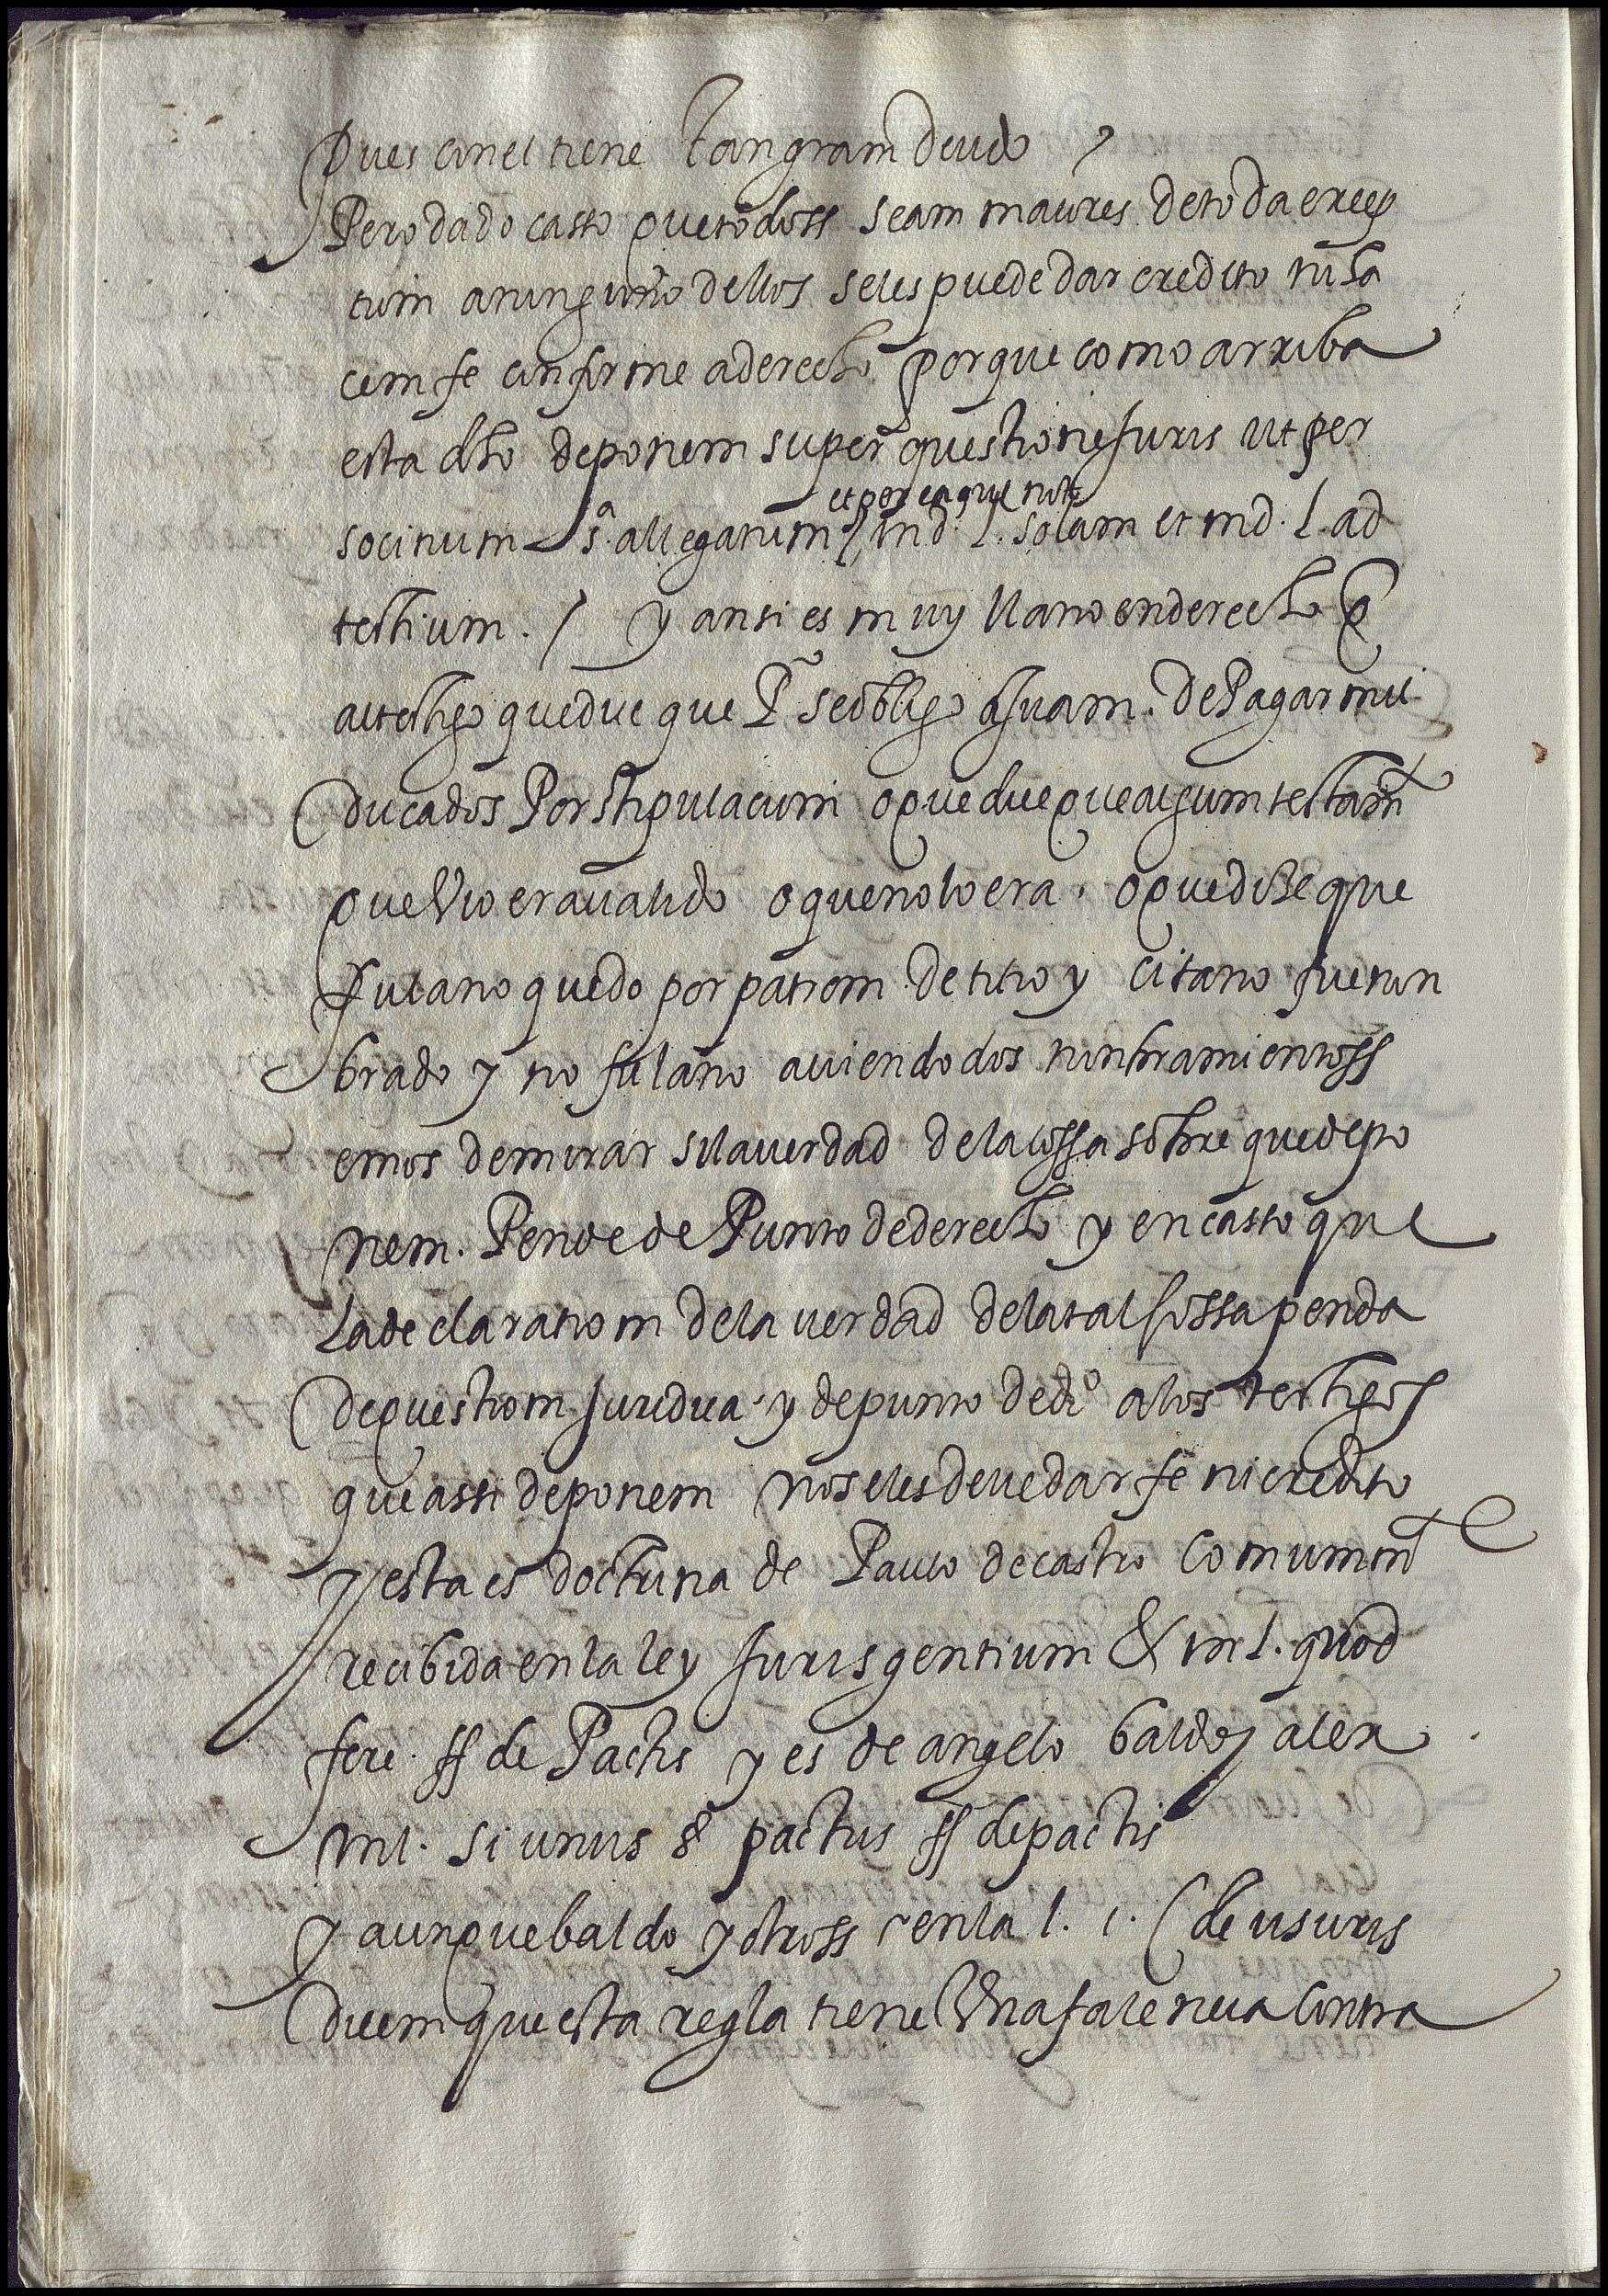 Pues con el tiene tan gram deudo /
Pero dado casso que todoss seam maiores de toda excep
ciom a ninguno dellos se les puede dar credito ni ha
cem fe conforme a derecho porque como arriba
esta dho deponem super questione juris ut per
et per ea que not.
socinum sª. allegatum / in d. l. solam et in d. l. ad
testium. / y ansi es muy llano en derecho q̃
al testigo que dice que Pº se obligo a Juam. de Pagar mil
ducados Por stipulaciom o que dice que algum testamto
que vio era valido o que no lo era. o que dise que
fulano quedo por patrom de titio y citano fue non
brado y no fulano aviendo dos nonbramientoss
emos de mirar si la verdad de la cossa sobre que depo
nem. Pende de Punto de derecho y en casso que
La declaratiom de la verdad de la tal cossa penda
de questiom juridica y de punto de drº a los testigos
que assi deponem no se les deve dar fe ni credito
y esta es doctrina de Paulo de castro Comummte
recibida en la ley juris gentium & in l. quod
fere. ff de Pactis y es de angelo baldo y alex
in l. si unus § pactus ff de pactis
y aunque baldo y otross en la l. 1. C de usuris
dicem que esta regla tiene una falencia contra